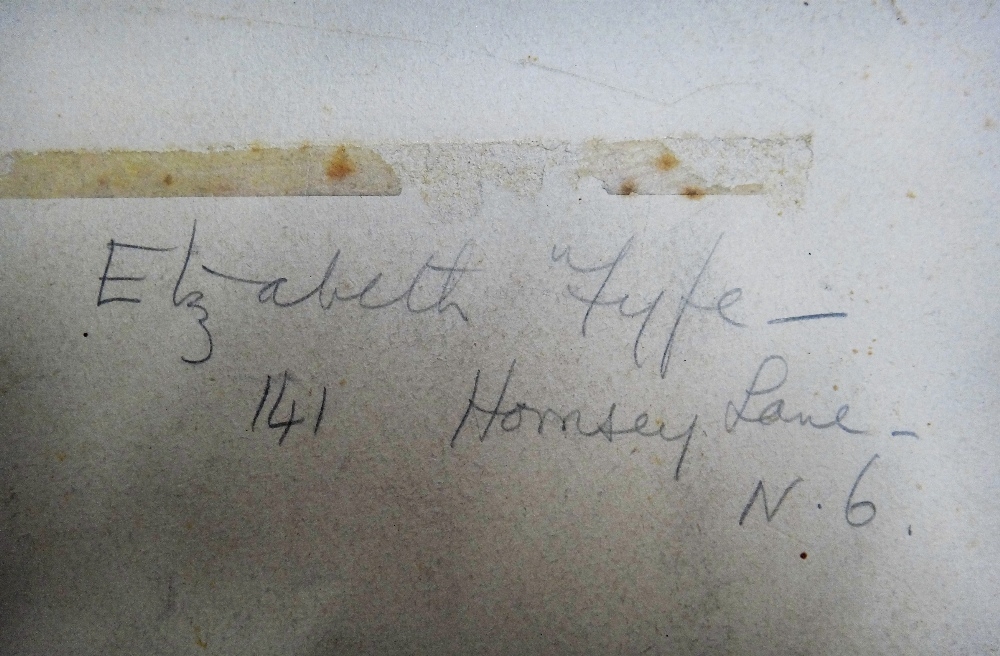 Elzabeth Fyfe –
141 Hornsey Lane –
N. 6.